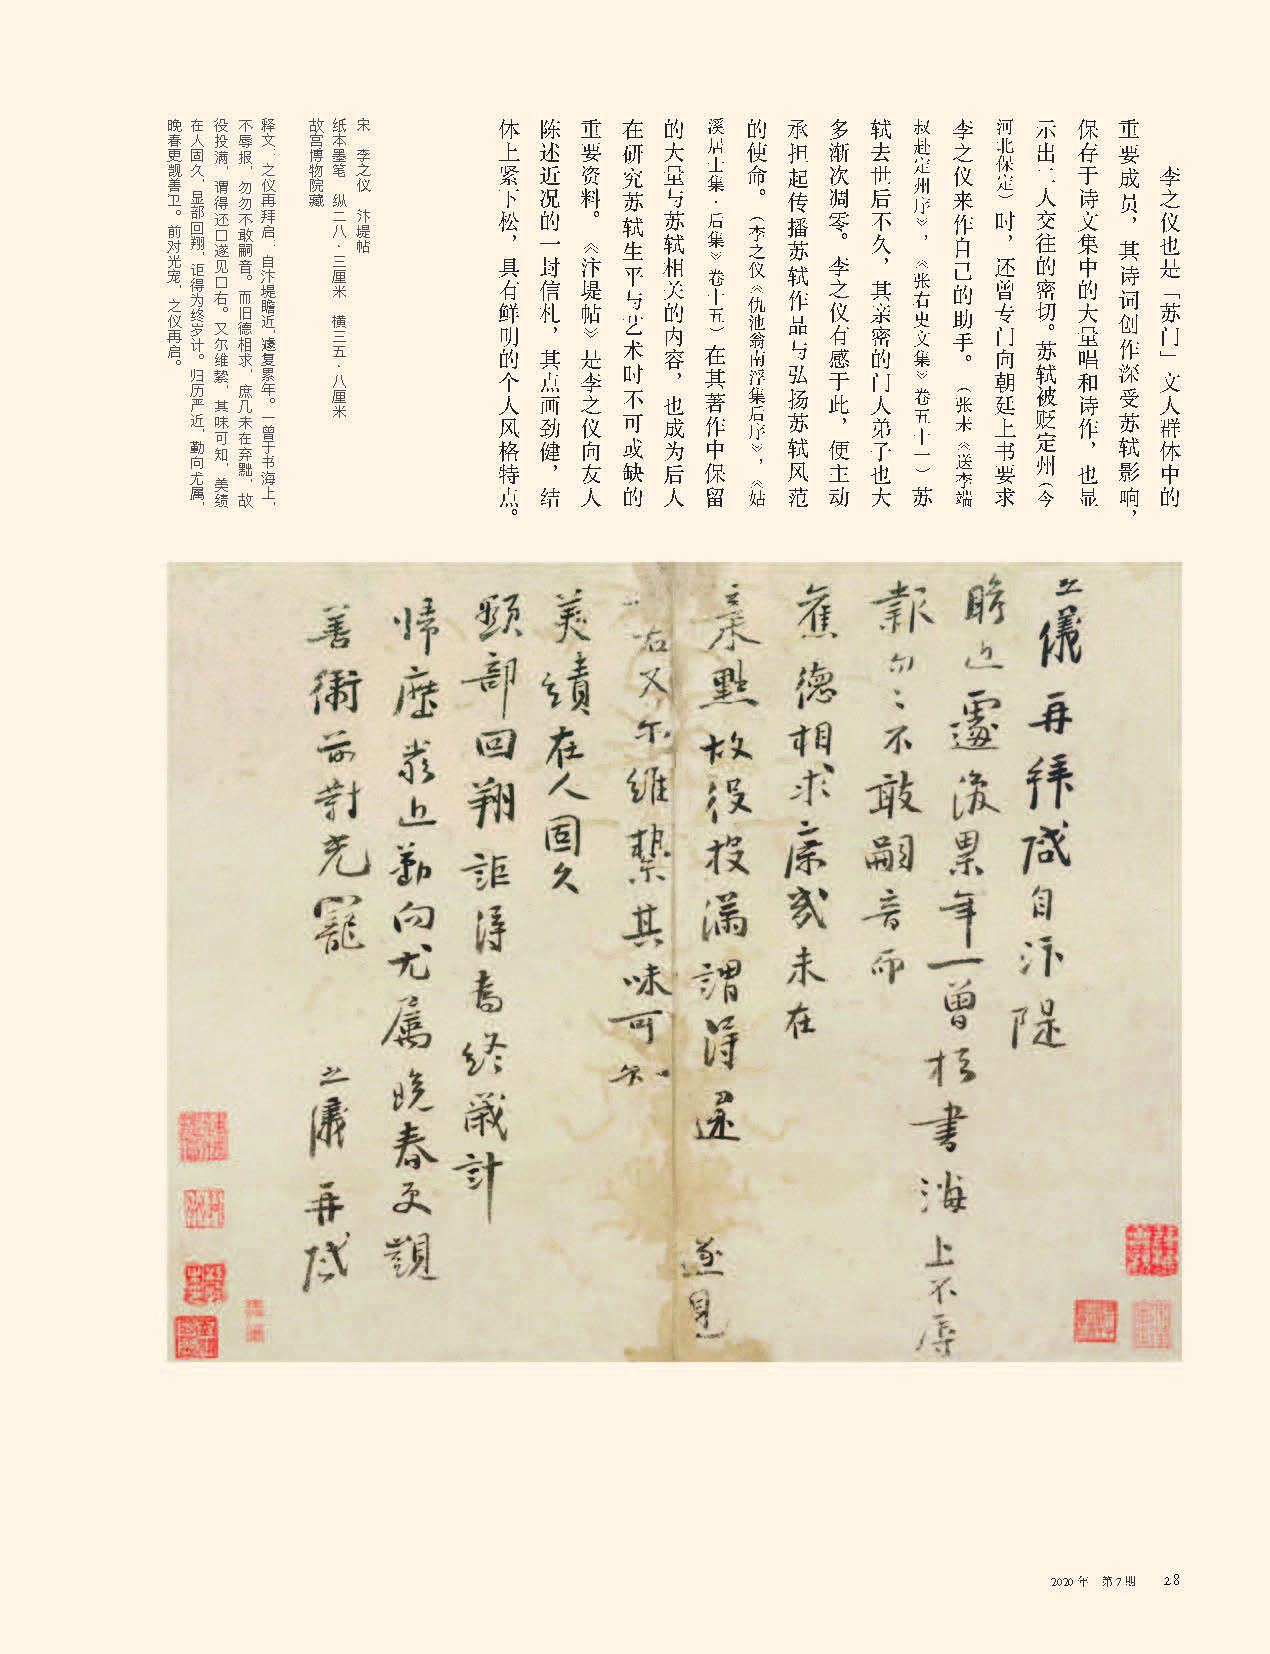 李之仪也是「苏门」文人群体中的
重要成员，其诗词创作深受苏轼影响，
保存于诗文集中的大量唱和诗作，也显
示出二人交往的密切。苏轼被贬定州（今
河北保定）时，还曾专门向朝廷上书要求
李之仪来作自己的助手。（张耒《送李端
叔赴定州序》，《张右史文集》卷五十一）苏
轼去世后不久，其亲密的门人弟子也大
多渐次凋零。李之仪有感于此，便主动
承担起传播苏轼作品与弘扬苏轼风范
的使命。（李之仪《仇池翁南浮集后序》，《姑
溪居士集·后集》卷十五）在其著作中保留
的大量与苏轼相关的内容，也成为后人
在研究苏轼生平与艺术时不可或缺的
重要资料。《汴堤帖》是李之仪向友人
陈述近况的一封信札，其点画劲健，结
体上紧下松，具有鲜明的个人风格特点。
宋　李之仪　汴堤帖
纸本墨笔　纵二八·三厘米　横三五·八厘米
故宫博物院藏
释文：之仪再拜启：自汴堤瞻近，遽复累年。一曾于书海上，
不辱报，勿勿不敢嗣音。而旧德相求，庶几未在弃黜，故
役投满，谓得还口遂见口右。又尔维絷，其味可知，美绩
在人固久，显部回翔，讵得为终岁计。归历严近，勤向尤属，
晚春更觊善卫。前对光宠，之仪再启。
之儀再拜啟自汴隄
瞻近遽復累年一曾於書海上不辱
報勿〻不敢嗣音而
舊德相求庶幾未在
棄黜故役投滿謂得還　遂見
右又尔維縶其味可知
美績在人固久
顯部回翔詎得為終歲計
歸歷嚴近勤向尤屬晚春更覬
善衛前對光寵　之儀再啟
2020年　第7期　28